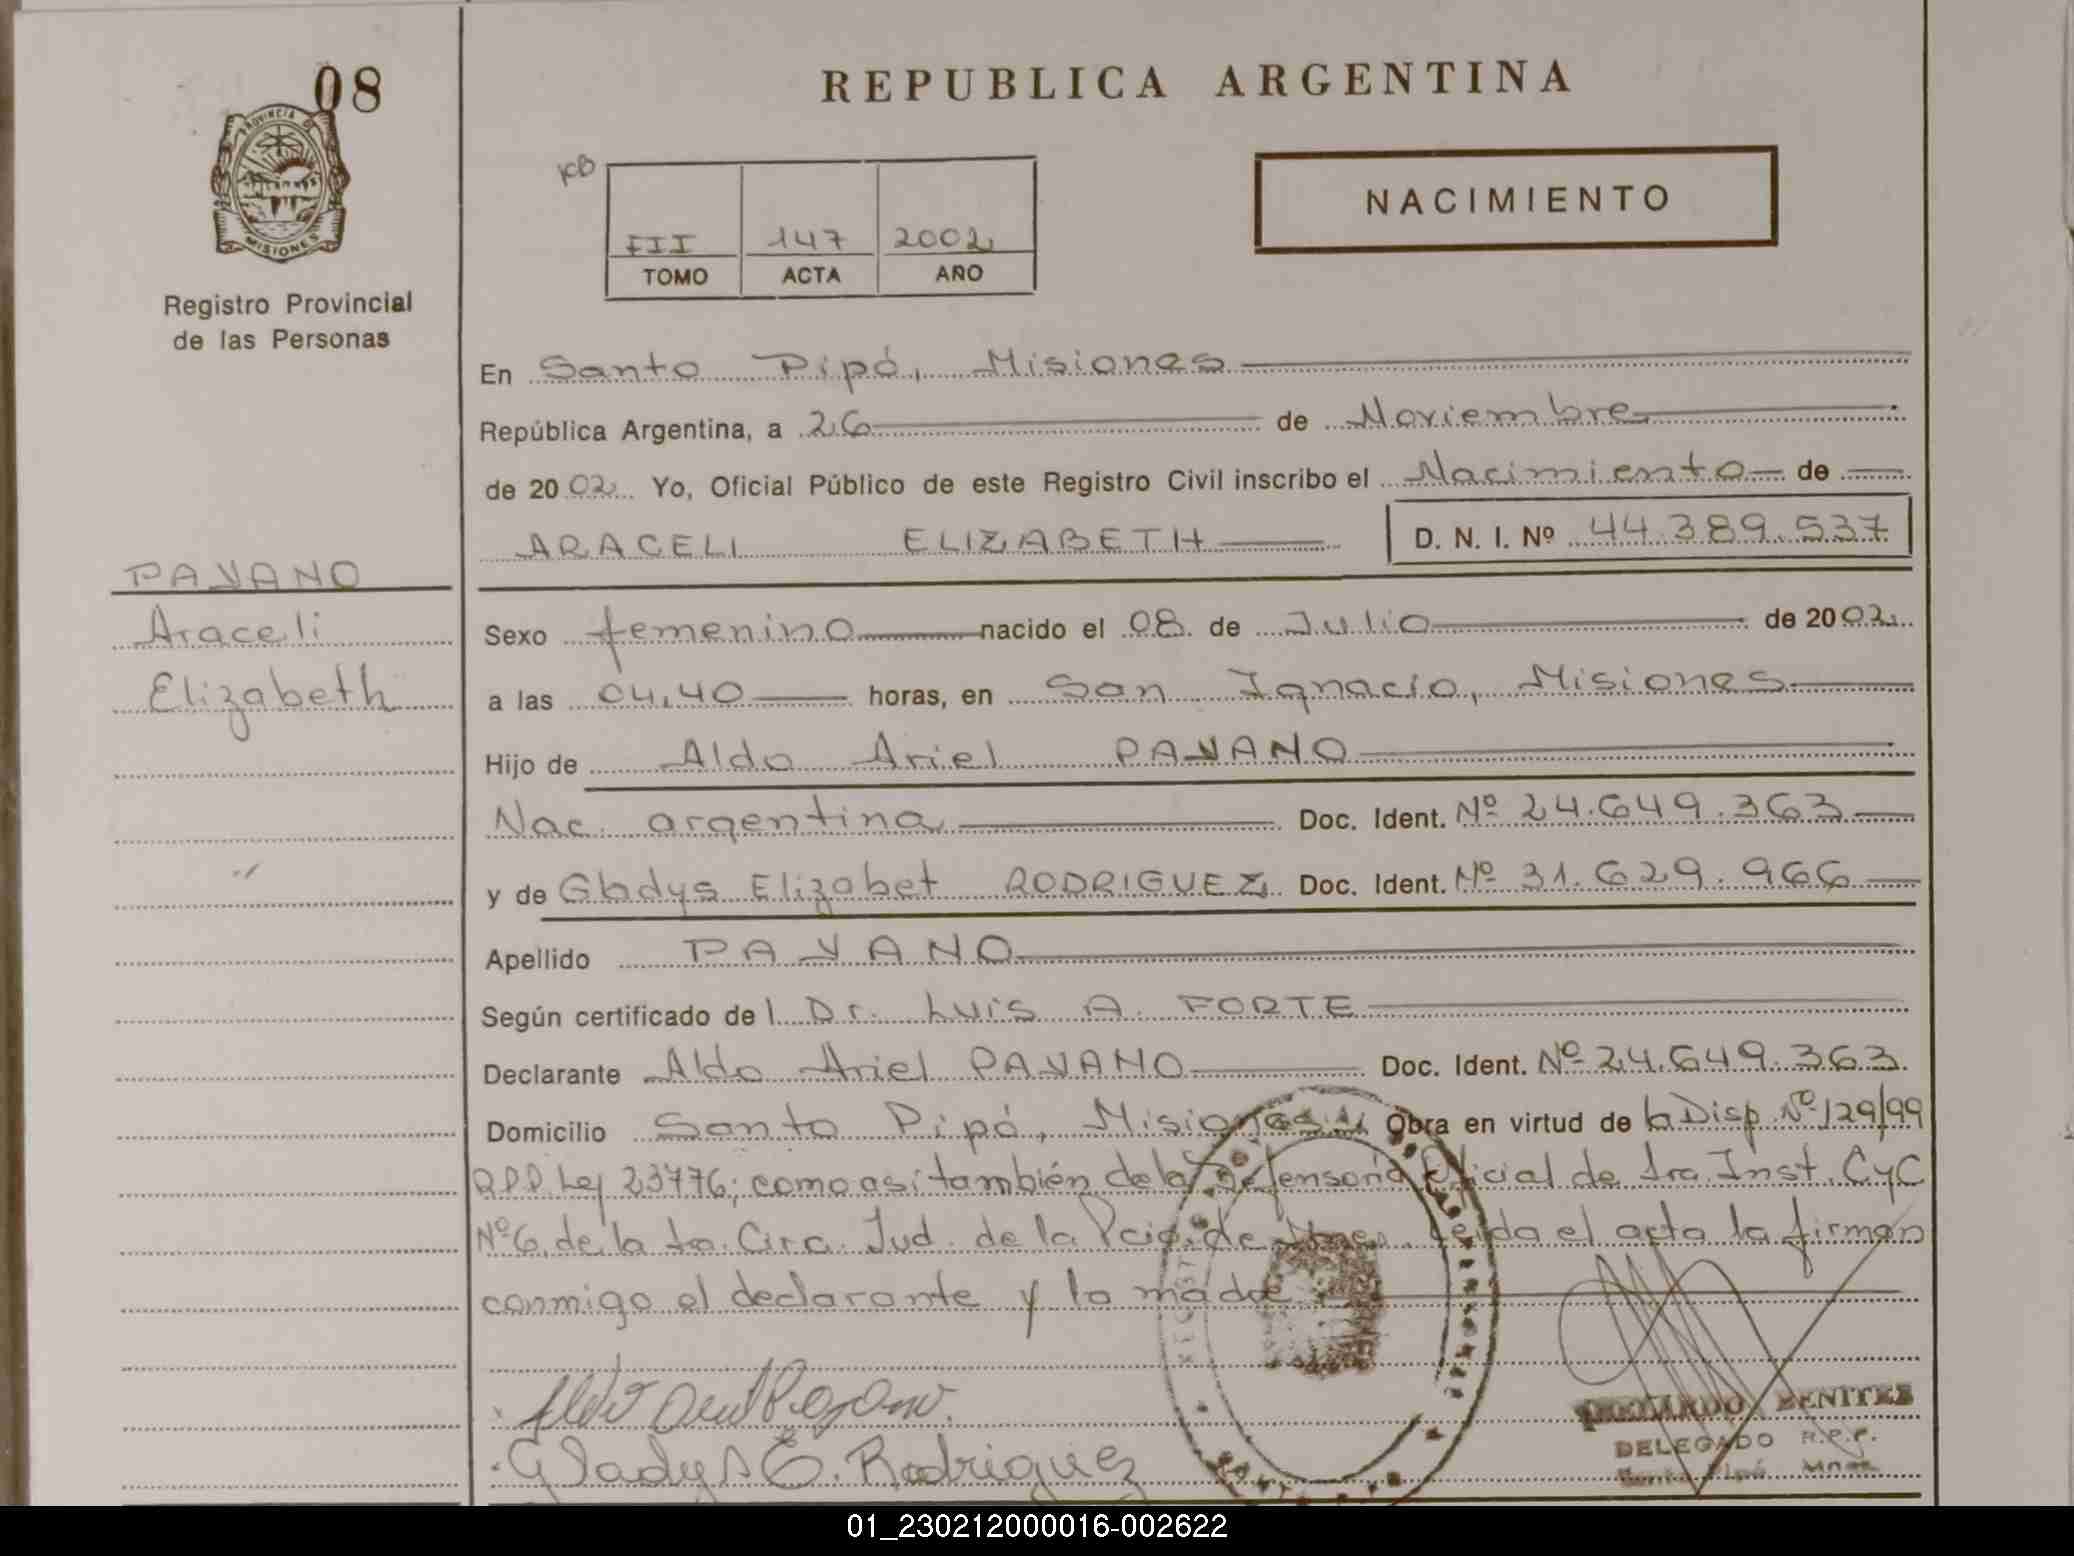 08
REPUBLICA ARGENTINA
PROVINCIA DE
MISIONES
Registro Provincial
de las Personas
KB
III 147 2002
TOMO ACTA AÑO
NACIMIENTO
En Santo Pipó, Misiones
República Argentina, a 26 de Noviembre
de 2002 Yo, Oficial Público de este Registro Civil inscribo el Nacimiento de
ARACELI ELIZABETH D. N. I. Nº 44.389.537
PAYANO
Araceli
Elizabeth
Sexo femenino nacido el 08 de Julio de 2002
a las 04,40 horas, en San Ignacio, Misiones
Hijo de Aldo Ariel PAYANO
Nac. argentina Doc. Ident. Nº 24.649.363
y de Gladys Elizabet RODRIGUEZ Doc. Ident. Nº 31.629.966
Apellido PAYANO
Según certificado del Dr. Luis A. FORTE
Declarante Aldo Ariel PAYANO Doc. Ident. Nº 24.649.363
Domicilio Santo Pipó, Misiones Obra en virtud de la Disp. Nº 129/99
R.P.P. Ley 23776; como asi también de la Defensoria Oficial de 1ra. Inst. CyC
Nº6 de la 1a. Circ. Jud. de la Pcia. de Mnes. Leida el acta la firman
conmigo el declarante y la madre
Gladys E. Rodriguez
BENITES
DELEGADO R.P.P.
Santo Pipó Mnes
01_230212000016-002622